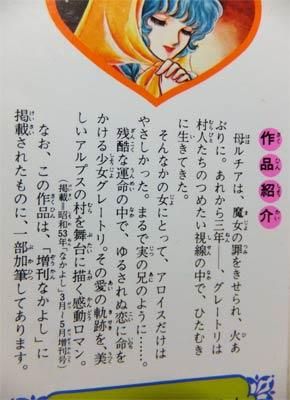 作品紹介
母ルチアは、魔女の罪をきせられ、火あ
ぶりに。あれから三年──、グレートリは
村人たちのつめたい視線の中で、ひたむき
に生きてきた。
そんなかの女にとって、アロイスだけは
やさしかった。まるで実の兄のように……。
残酷な運命の中で、ゆるされぬ恋に命を
かける少女グレートリ。その愛の軌跡を、美
しいアルプスの村を舞台に描く感動ロマン。
(掲載=昭和53年「なかよし」3月~5月増刊号)
なお、この作品は、「増刊なかよし」に
掲載されたものに、一部加筆してあります。